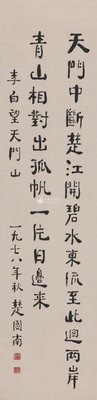 天門中斷楚江開碧水東流至此迴兩岸
青山相對出孤帆一片日邊來
李白望天門山
一九七八年秋楚图南